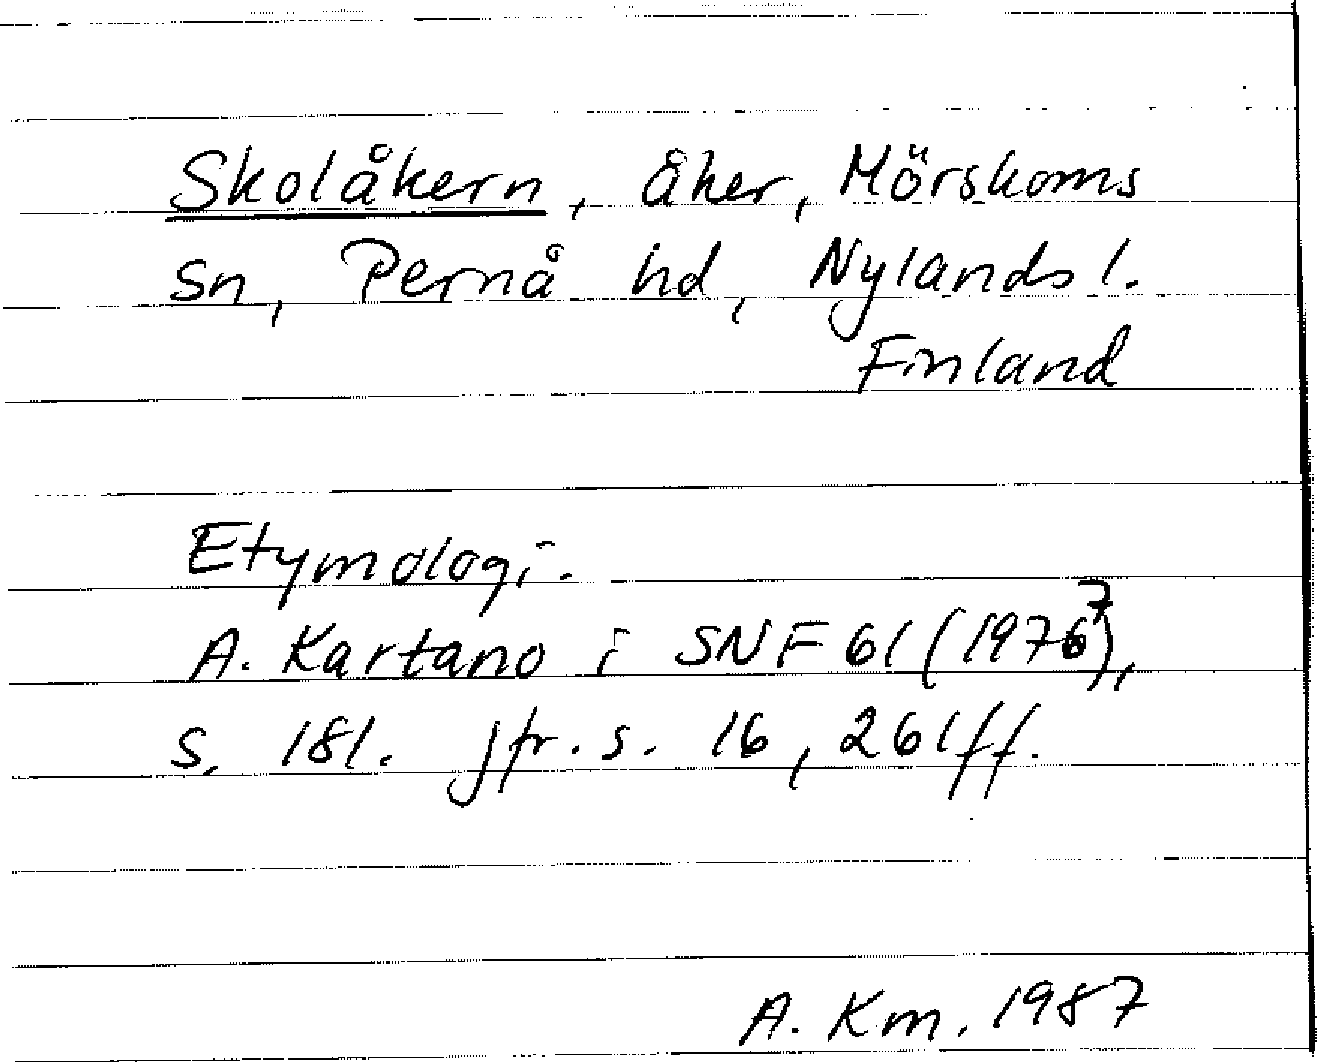 Skolåkern, åker, Mörskoms
sn, Pernå hd, Nylands l.
Finland
Etymologi.
A. Kartano i SNF 61 (1977),
s. 181. jfr. s. 16, 261ff.
A. Km. 1987